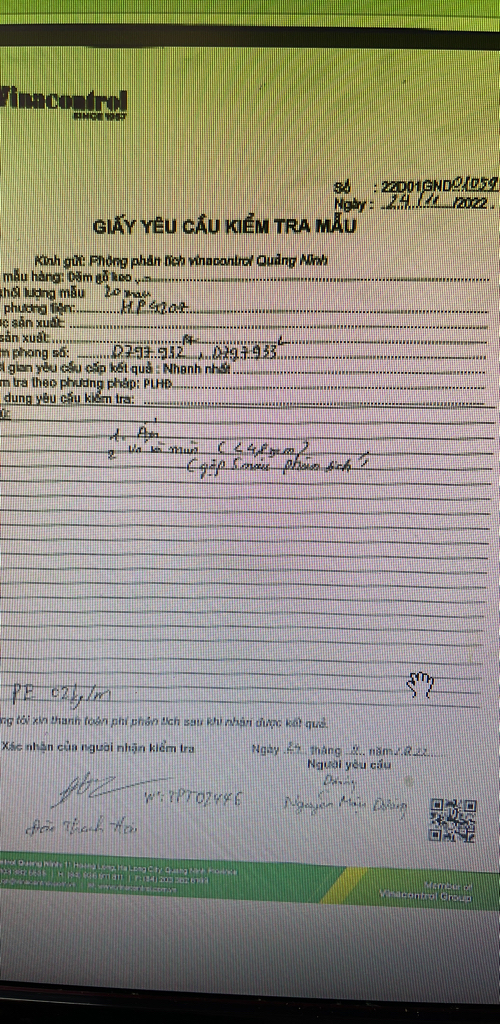 Vinacontrol
SINCE 1957
Số : 22D01GND01059
Ngày : 24/11/2022.
GIẤY YÊU CẦU KIỂM TRA MẪU
Kính gửi: Phòng phân tích vinacontrol Quảng Ninh
mẫu hàng: Dăm gỗ keo
khối lượng mẫu 20 mau
phương tiện: HP4207
sản xuất:
sản xuất:
phong số: D797.932, D797.933
gian yêu cầu cấp kết quả : Nhanh nhất
tra theo phương pháp: PLHĐ
dung yêu cầu kiểm tra:
1. Ẩm
2 mùn (<4,8mm)
(gộp 5 mẫu phân tích)
PE 02kg/m
tôi xin thanh toán phí phân tích sau khi nhận được kết quả.
Xác nhận của người nhận kiểm tra
Ngày 24 tháng 11 năm 2022
Người yêu cầu
Đào Thanh Hải
Nguyễn Dương
Quảng Ninh: 11 Hoàng Long, Hạ Long City, Quảng Ninh Province
Member of
Vinacontrol Group